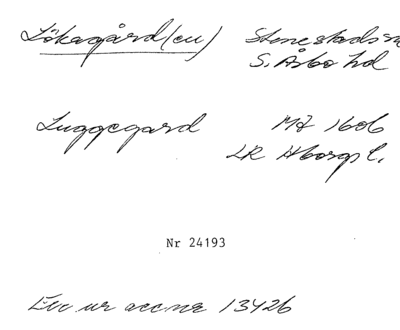 Lökagård(en) Stenestads sn
S. Åsbo hd
Luggegard MJ 1606
LR Hborgs l.
Nr 24193
Exc. ur acc.nr 13426